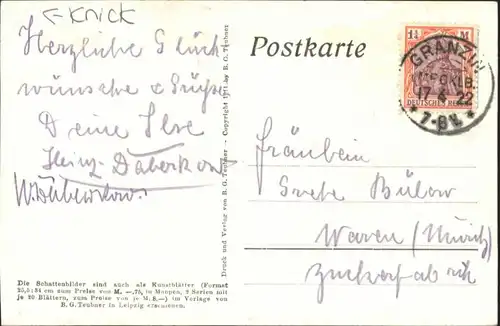 ←Knick
Herzliche Glück
wünsche & Grüße
Deine Ilse
Heinz Daberkow
W. Daberkow.
Die Schattenbilder sind auch als Kunstblätter (Format
25,0:34 cm zum Preise von M. —.75, in Mappen, 2 Serien mit
je 20 Blättern, zum Preise von je M. 8.—) im Verlage von
B. G. Teubner in Leipzig erschienen.
Druck und Verlag von B. G. Teubner
Copyright 1911 by B. G. Teubner
Postkarte
1¼ M
DEUTSCHES REICH
GRANZIN
MECKLB.
17 4 22
7-8V.
Fräulein
Grete Bülow
Waren (Müritz)
Zuckerfabrik